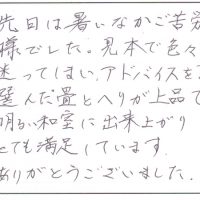 先日は暑いなかご苦労
様でした。見本で色々
迷ってしまい、アドバイスを
選んだ畳とへりが上品で
明るい和室に出来上がり
とても満足しています。
ありがとうございました。